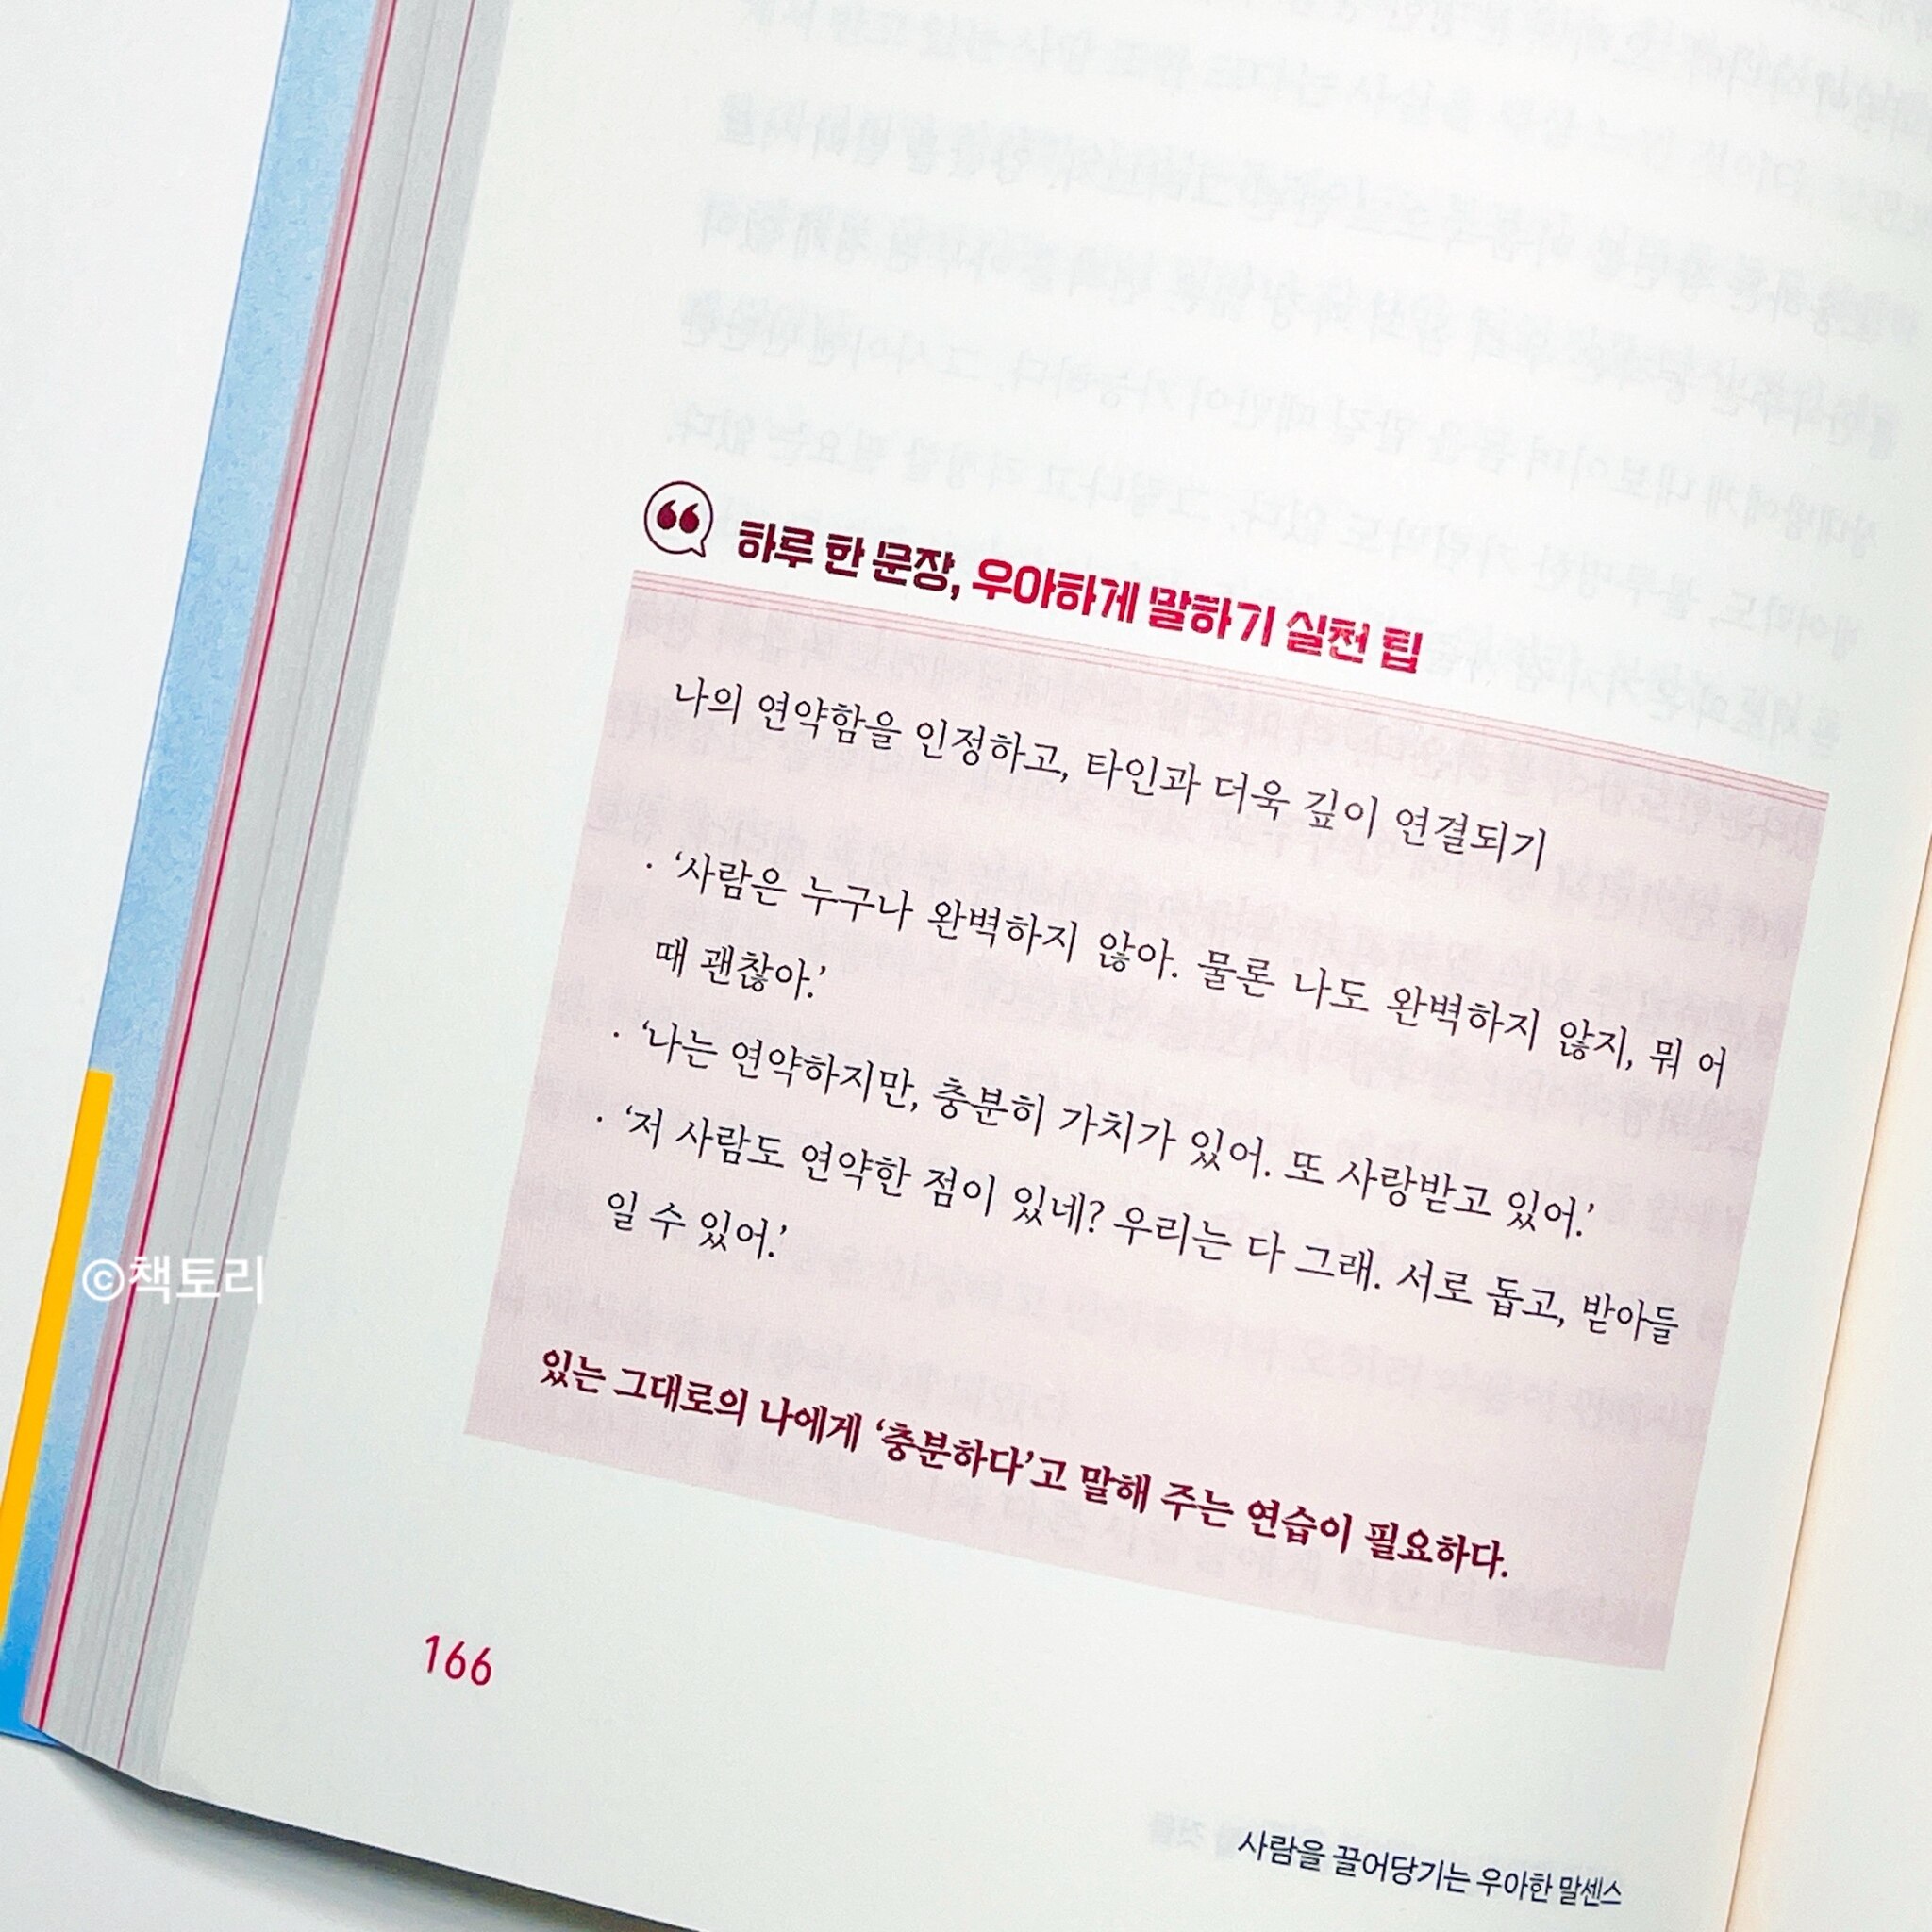 하루 한 문장, 우아하게 말하기 실천 팁
나의 연약함을 인정하고, 타인과 더욱 깊이 연결되기
· ‘사람은 누구나 완벽하지 않아. 물론 나도 완벽하지 않지, 뭐 어
때 괜찮아.’
· ‘나는 연약하지만, 충분히 가치가 있어. 또 사랑받고 있어.’
· ‘저 사람도 연약한 점이 있네? 우리는 다 그래. 서로 돕고, 받아들
일 수 있어.’
있는 그대로의 나에게 ‘충분하다’고 말해 주는 연습이 필요하다.
©책토리
166
사람을 끌어당기는 우아한 말센스